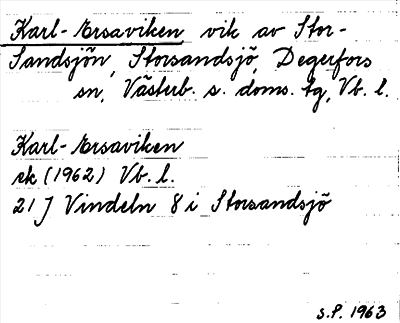 Karl-Ersaviken vik av Stor-
Sandsjön, Storsandsjö, Degerfors
sn, Västerb. s. doms. tg, Vb. l.
Karl-Ersaviken
rk (1962) Vb. l.
21 J Vindeln 8 i Storsandsjö
S.P. 1963